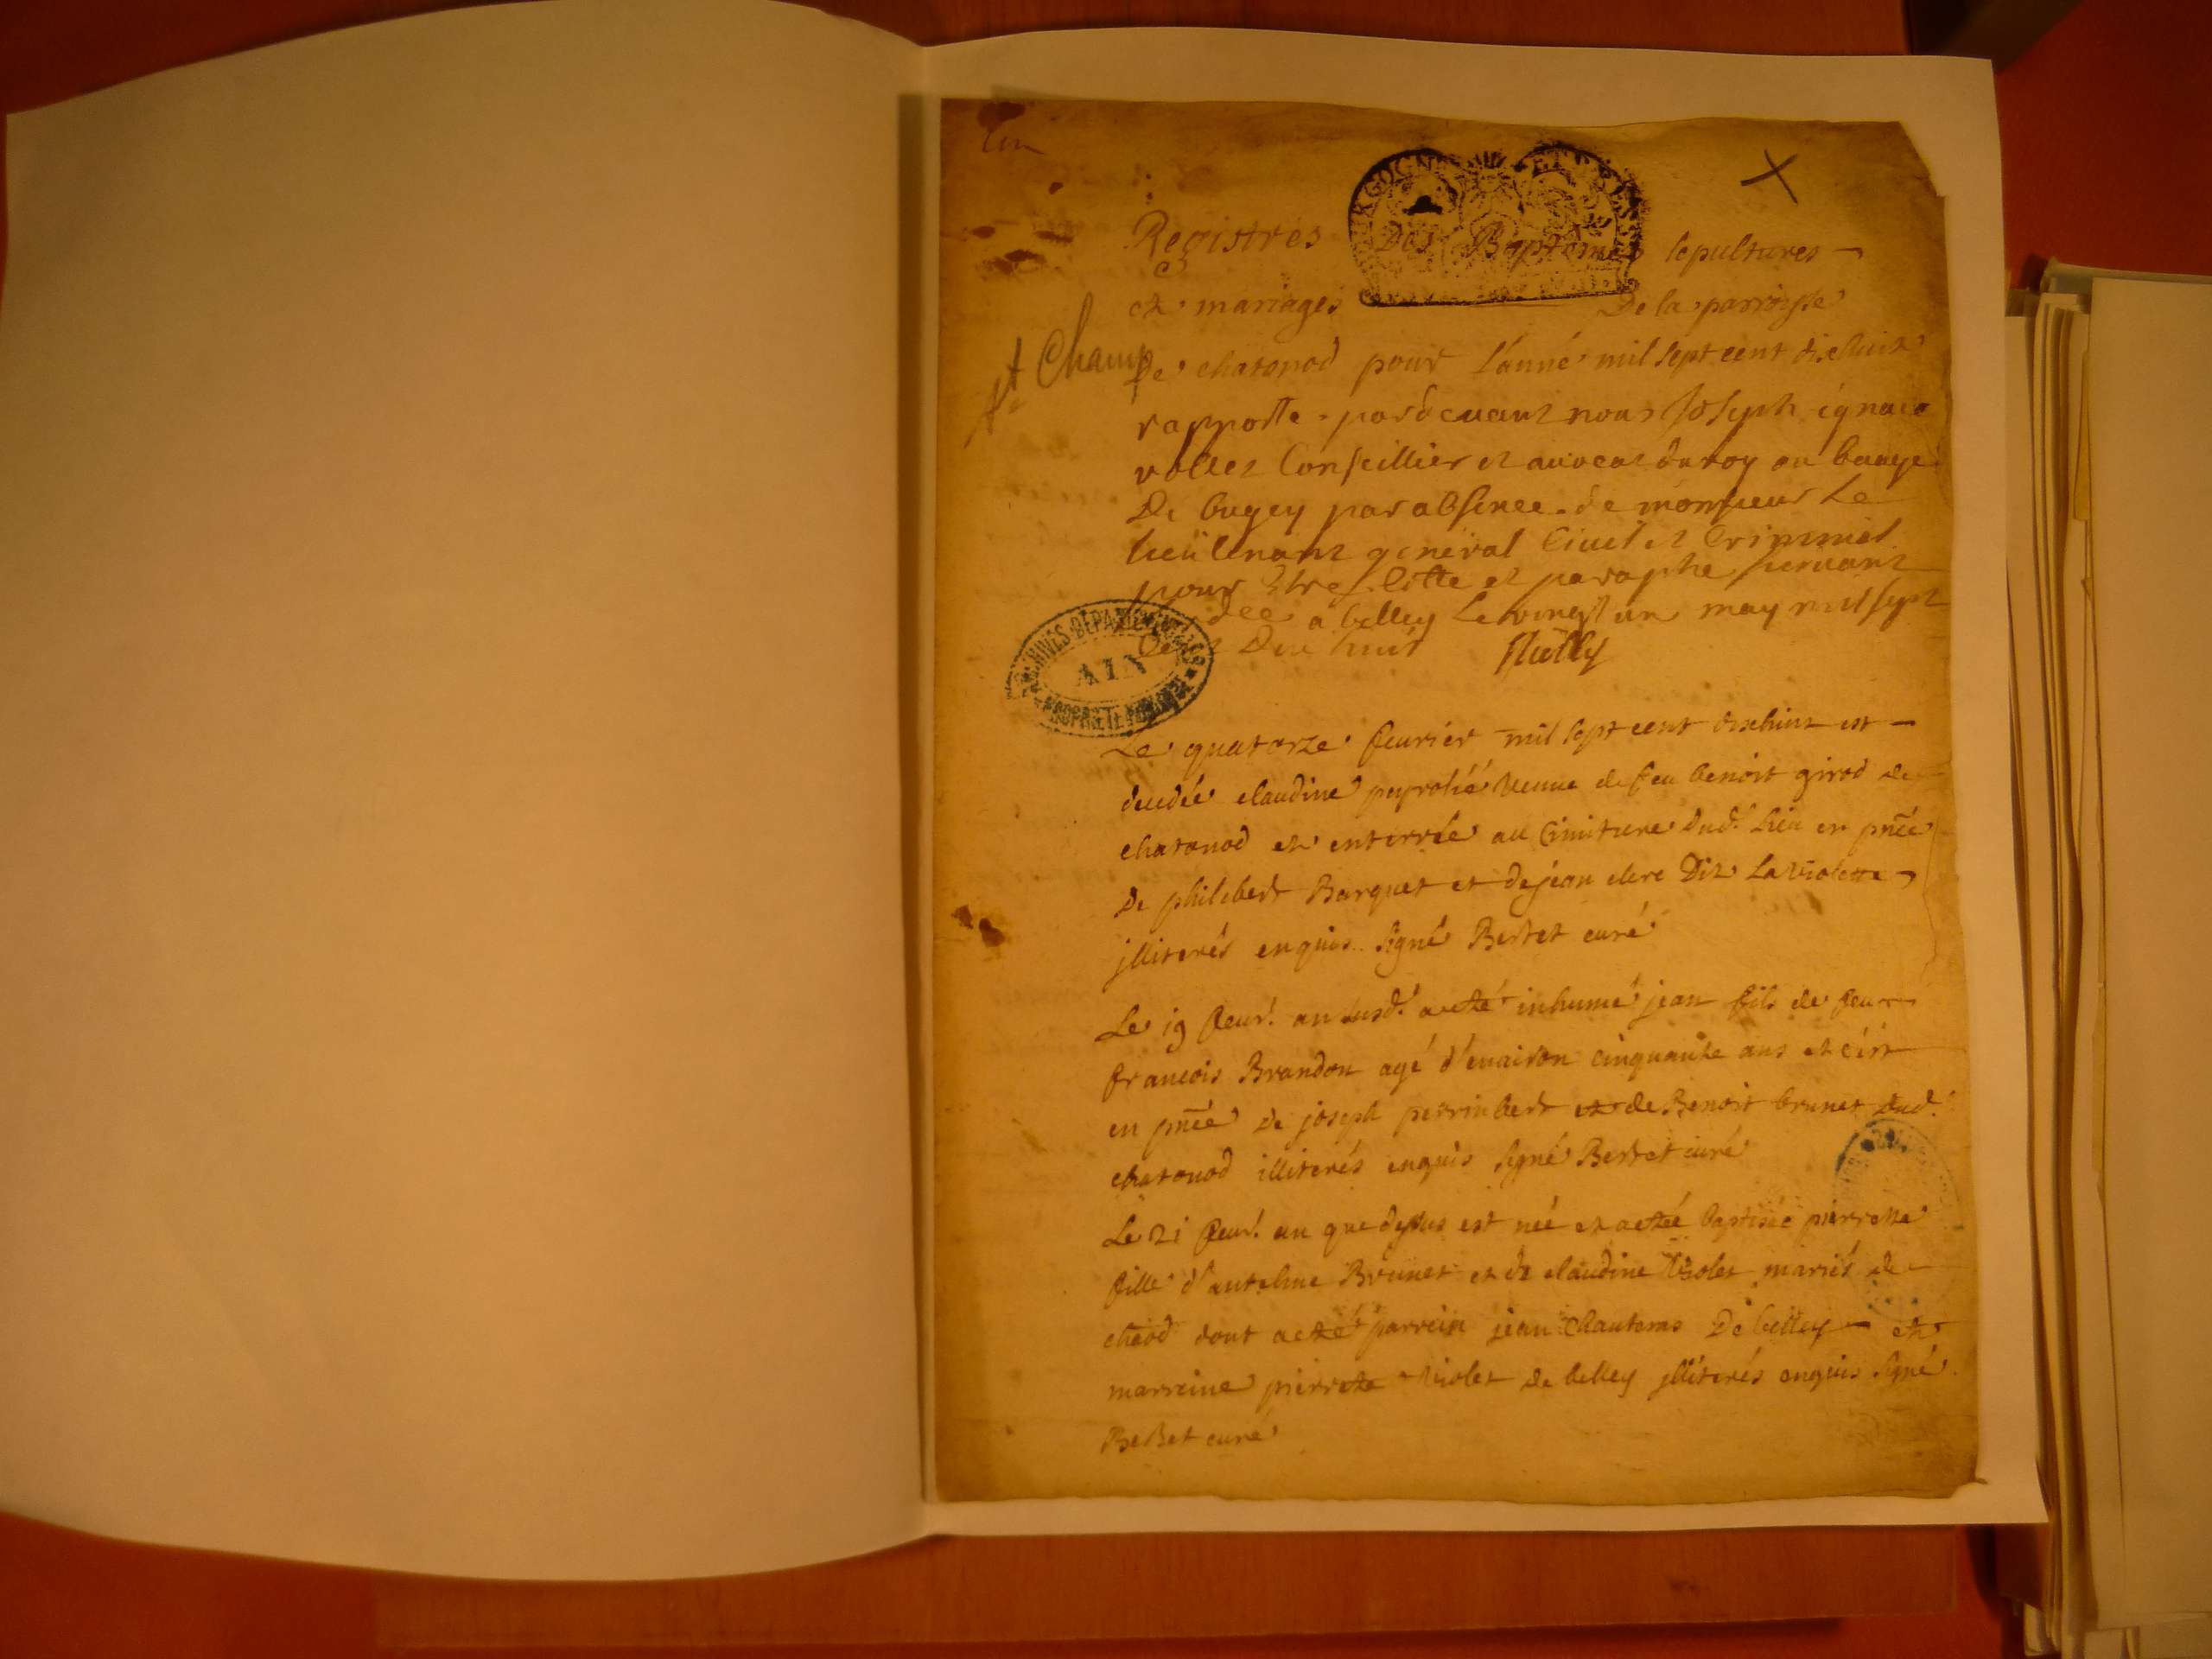 Un
BOURGOGNE ET BRESSE
Registres Des Baptemes sepultures
et mariages De la parroisse
St Champ
De chatonod pour l'anné mil sept cent dixhuit
rapporte pardevant nous Joseph ignace
vollet Conseillier et avocat du roy au baage
De bugey par absence de monsieur Le
lieutenant general Civil et Criminel
pour Etre Cotte et paraphe servant
a belley Le vingt un may mil sept
Dix huit
ARCHIVES DEPARTEMENTALES
AIN
PROPRIETE PUBLIQUE
Le quatorze feurier mil sept cent dixhuit est
decedée claudine veuue de feu benoit girod de
chatonod et enterrée au Cimitiere dud. lieu en pnce
De philibert Barquet et de jean clerc Dit La violette
jlliterés enquis signé Bertet curé
Le 19 feur. an susd. a eté inhumé jean fils de feu
francois Brandon agé d'enuiron cinquante ans et c'est
en pnce De joseph perrin bert et de Benoit brunet dud.
chatonod illiterés enquis signé Bertet curé
Le 21 feur. an que dessus est née et a eté baptisée pierrette
fille d'antelme Brunet et de claudine Violet mariés de
chaod dont a eté parrein jean Chauteras De belley et
marreine pierrette violet de belley jlliterés enquis signé
Bertet curé